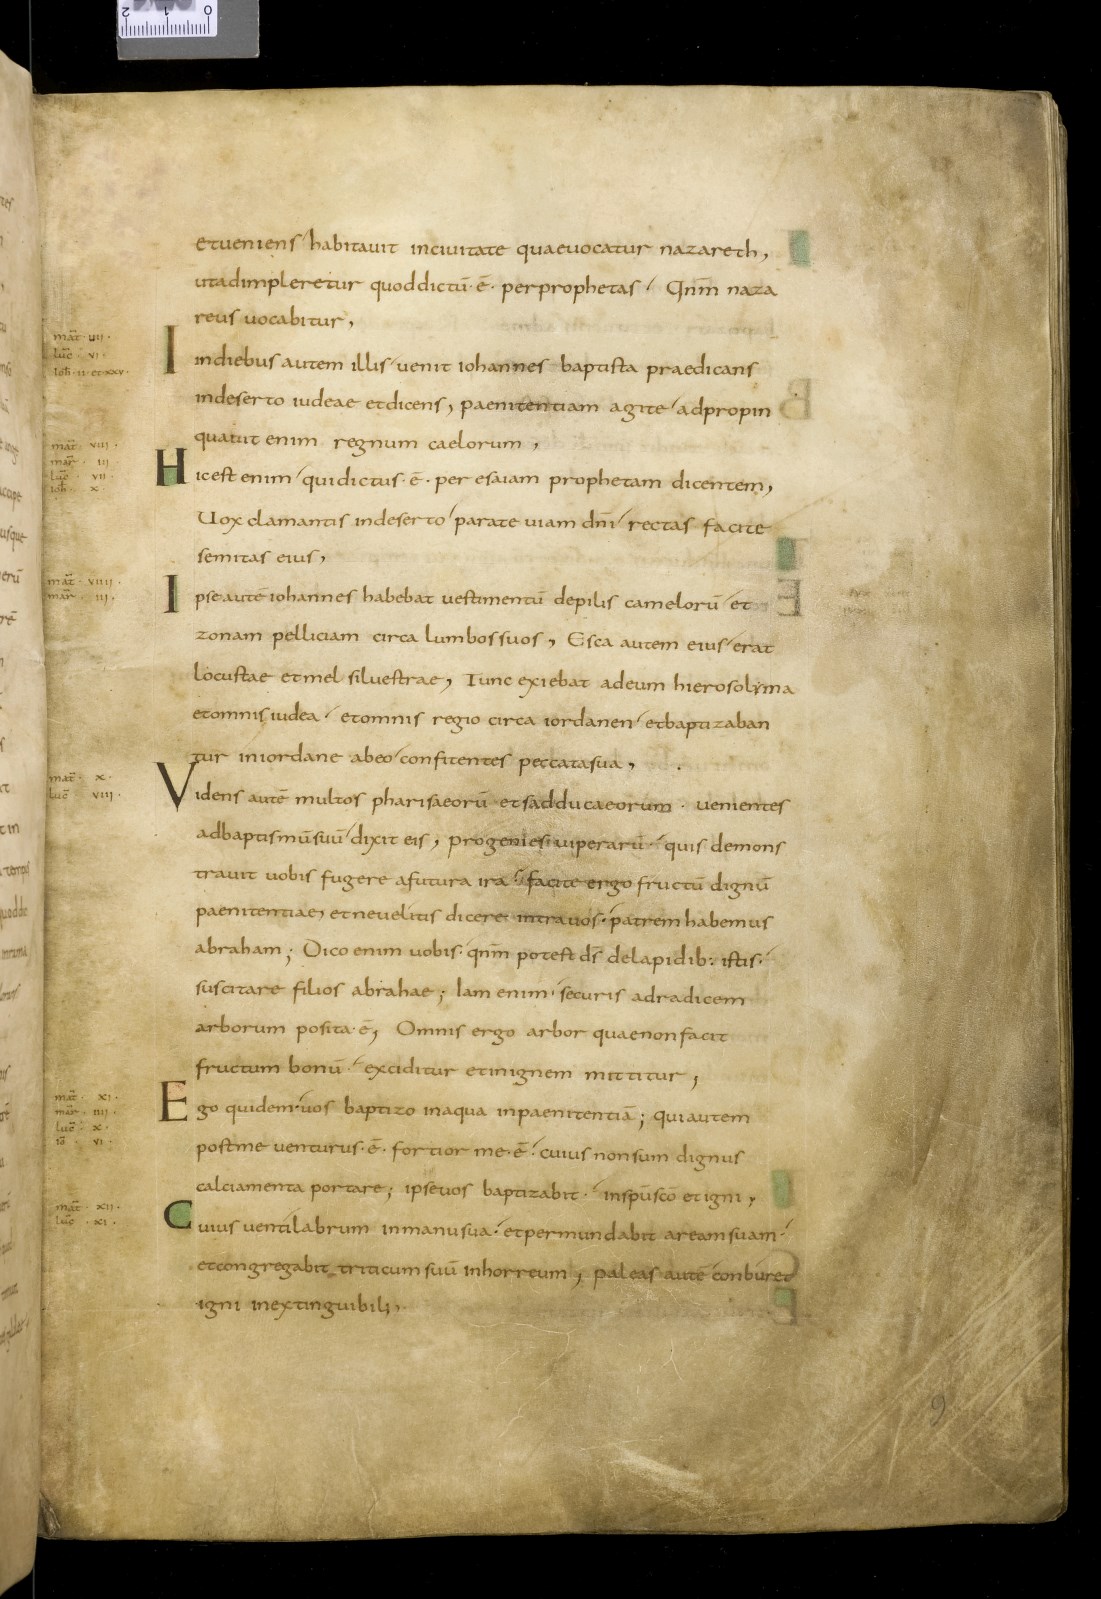 et ueniens habitauit in ciuitate quae uocatur nazareth,
ut adimpleretur quod dictū · ē · per prophetas · Qnm̄ naza
reus uocabitur,
mat̄ · uii ·
luc̄ · ui ·
ioh̄ · ii · et · xxv ·
In diebus autem illis uenit iohannes baptista praedicans
in deserto iudeae et dicens, paenitentiam agite adpropin
quauit enim regnum caelorum,
mat̄ · uiii ·
mar̄ · iii ·
luc̄ · uii ·
ioh̄ · x ·
Hic est enim qui dictus · ē · per esaiam prophetam dicentem,
Uox clamantis in deserto parate uiam dn̄i rectas facite
semitas eius,
mat̄ · uiiii ·
mar̄ · iii ·
Ipse autē iohannes habebat uestimentū de pilis camelorū et
zonam pelliciam circa lumbos suos, Esca autem eius erat
locustae et mel siluestrae, Tunc exiebat ad eum hierosolyma
et omnis iudea · et omnis regio circa iordanen et baptizaban
tur in iordane ab eo confitentes peccata sua,
mat̄ · x ·
luc̄ · uiii ·
Videns autē multos pharisaeorū et sadducaeorum · uenientes
ad baptismū suū dixit eis, progenies uiperarū · quis demons
trauit uobis fugere a futura ira · facite ergo fructū dignū
paenitentiae, et ne uelitis dicere intra uos · patrem habemus
abraham; Dico enim uobis · qnm̄ potest ds̄ de lapidib: istis ·
suscitare filios abrahae; Iam enim · securis ad radicem
arborum posita · ē, Omnis ergo arbor quae non facit
fructum bonū · exciditur et in ignem mittitur,
mat̄ · xi ·
mar̄ · iiii ·
luc̄ · x ·
iō · ui ·
Ego quidem · uos baptizo in aqua in paenitentiā; qui autem
post me uenturus · ē · fortior me · ē · cuius non sum dignus
calciamenta portare; ipse uos baptizabit · in spū scō et igni,
mat̄ · xii ·
luc̄ · xi ·
Cuius uentilabrum in manu sua · et permundabit aream suam ·
et congregabit triticum suū in horreum, paleas autē conburet
igni inextinguibili,
9